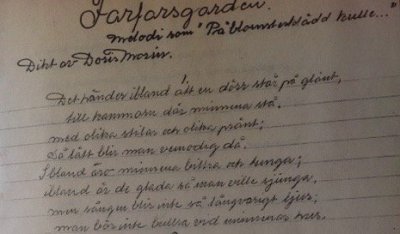 Farfarsgården.
melodi som "På blomsterklädd kulle..."
Dikt av Doris Morin.
Det händer ibland att en dörr står på glänt,
till kammarn där minnena stå.
med olika stilar och olika pränt;
Så lätt blir man vemodig då.
Ibland äro minnena bittra och tunga;
ibland är de glada så man ville sjunga,
men sången blir inte så långvarigt ljus;
man bör inte bullra vid minnenas hus.